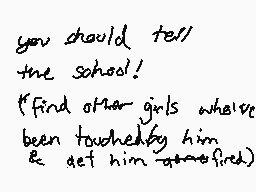 you should tell
the school!
(find other girls who've
been touched by him
& get him fired)